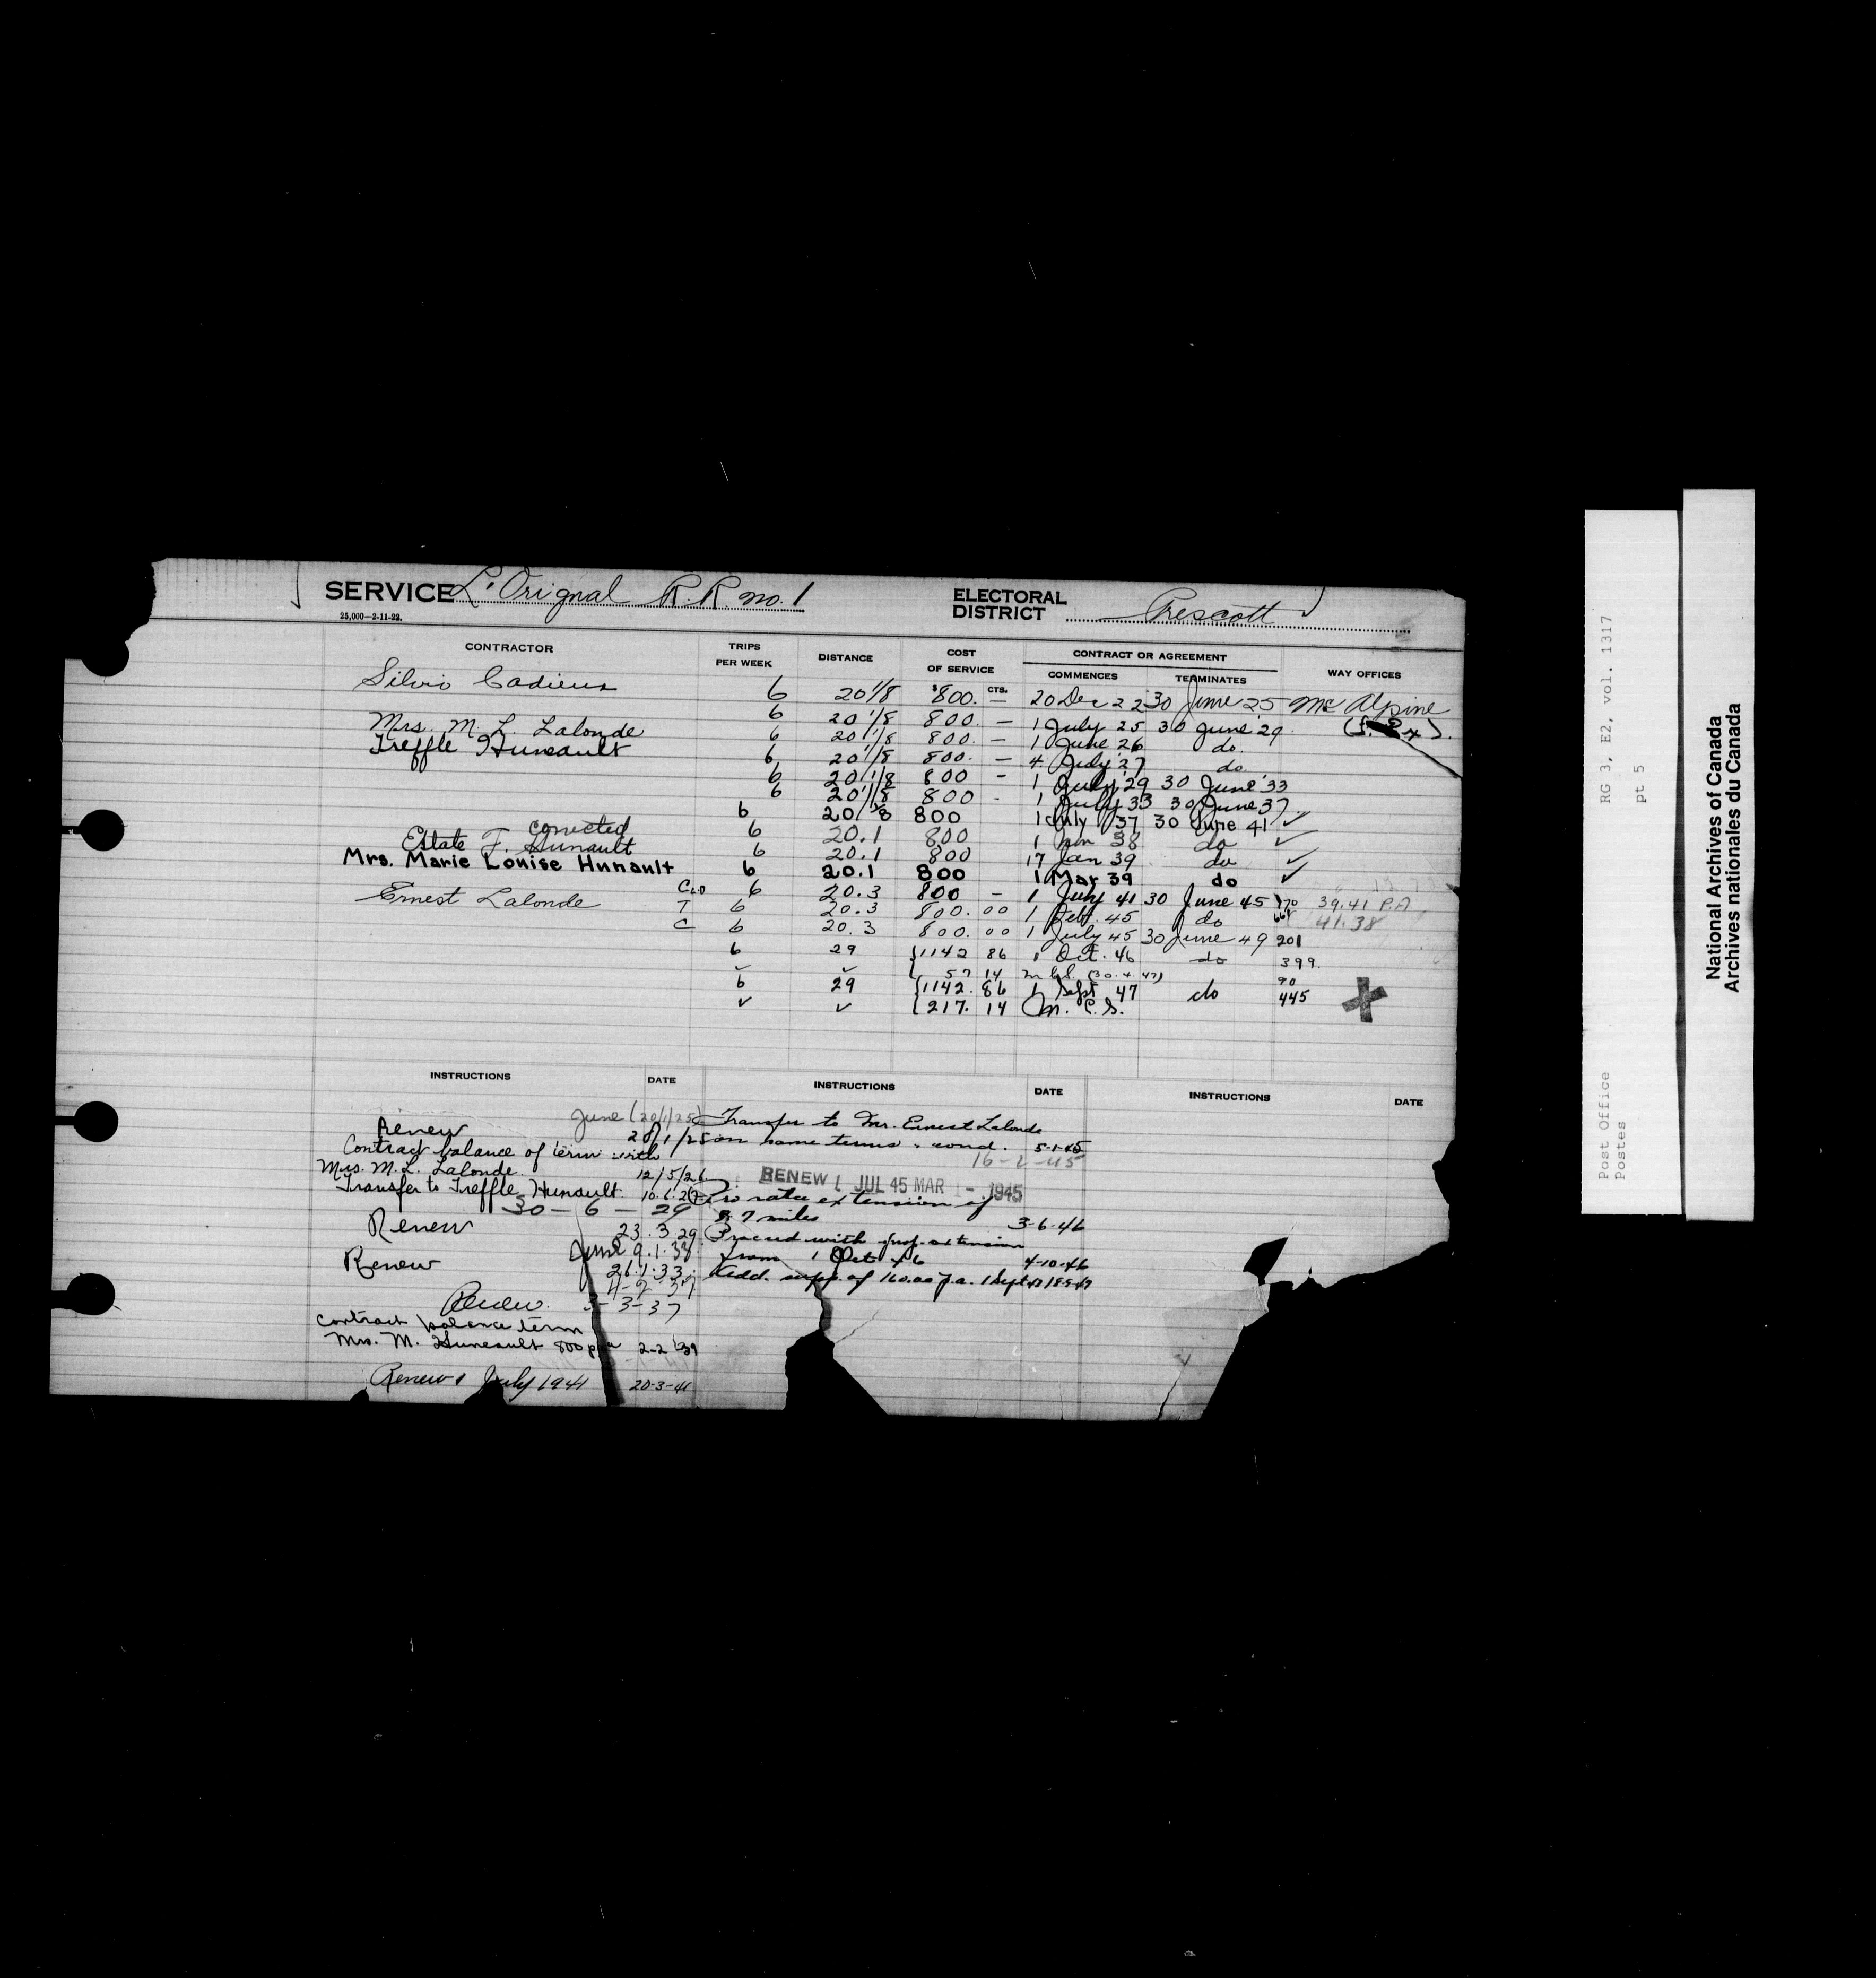 SERVICE L'Orignal R.R. no. 1 ELECTORAL DISTRICT Prescott
25,000—2-11-22.
CONTRACTOR TRIPS PER WEEK DISTANCE COST OF SERVICE CONTRACT OR AGREEMENT COMMENCES TERMINATES WAY OFFICES
Silvio Cadieux 6 20 1/8 $800. CTS. — 20 Dec 22 30 June 25 Mc Alpine
6 20 1/8 800. — 1 July 25 30 June 29
Mrs. M. L. Lalonde 6 20 1/8 800. — 1 June 26 do.
Treffle Huneault 6 20 1/8 800. — 4 July 27 do
6 20 1/8 800 — 1 July '29 30 June '33
6 20 1/8 800 - 1 July 33 30 June 37
6 20 1/8 800 1 July 37 30 June 41 ✓
corrected 6 20.1 800 1 Jan 38 do ✓
Estate T. Hunault 6 20.1 800 17 Jan 39 do ✓
Mrs. Marie Louise Hunault 6 20.1 800 1 Mar 39 do ✓
6 20.3 800 — 1 July 41 30 June 45 170 39.41 P.A
Ernest Lalonde T 6 20.3 800.00 1 Feb. 45 do 41.38
C 6 20.3 800.00 1 July 45 30 June 49 201
6 29 {1142 86 1 Oct. 46 do 399.
✓ ✓ { 57 14 m.c.s. (30.4.47) 90
6 29 {1142.86 1 Sept 47 do 445
✓ ✓ {217.14 M.C.S.
INSTRUCTIONS DATE INSTRUCTIONS DATE INSTRUCTIONS DATE
June (20/1/25)
Renew 28/1/25
Contract balance of term with
Mrs. M. L. Lalonde 12/5/26
Transfer to Treffle Hunault 10.6.27
30-6-29
Renew 23.3.29
June 9.1.33
Renew 26.1.33
Renew. 3-3-37
Contract balance term
Mrs. M. Huneault 800 pa 2-2-39
Renew 1 July 1941 20-3-41
Transfer to Mr. Ernest Lalonde
on same terms & cond. 5-1-45
16-2-45
RENEW 1 JUL 45 MAR 1 - 1945
Pro rata extension of
8.7 miles 3-6-46
Proceed with prop. extension
from 1 Oct 46 4-10-46
Add. supp. of 160.00 p.a. 1 Sept 47
Post Office RG 3, E2, vol. 1317
Postes pt 5
National Archives of Canada
Archives nationales du Canada